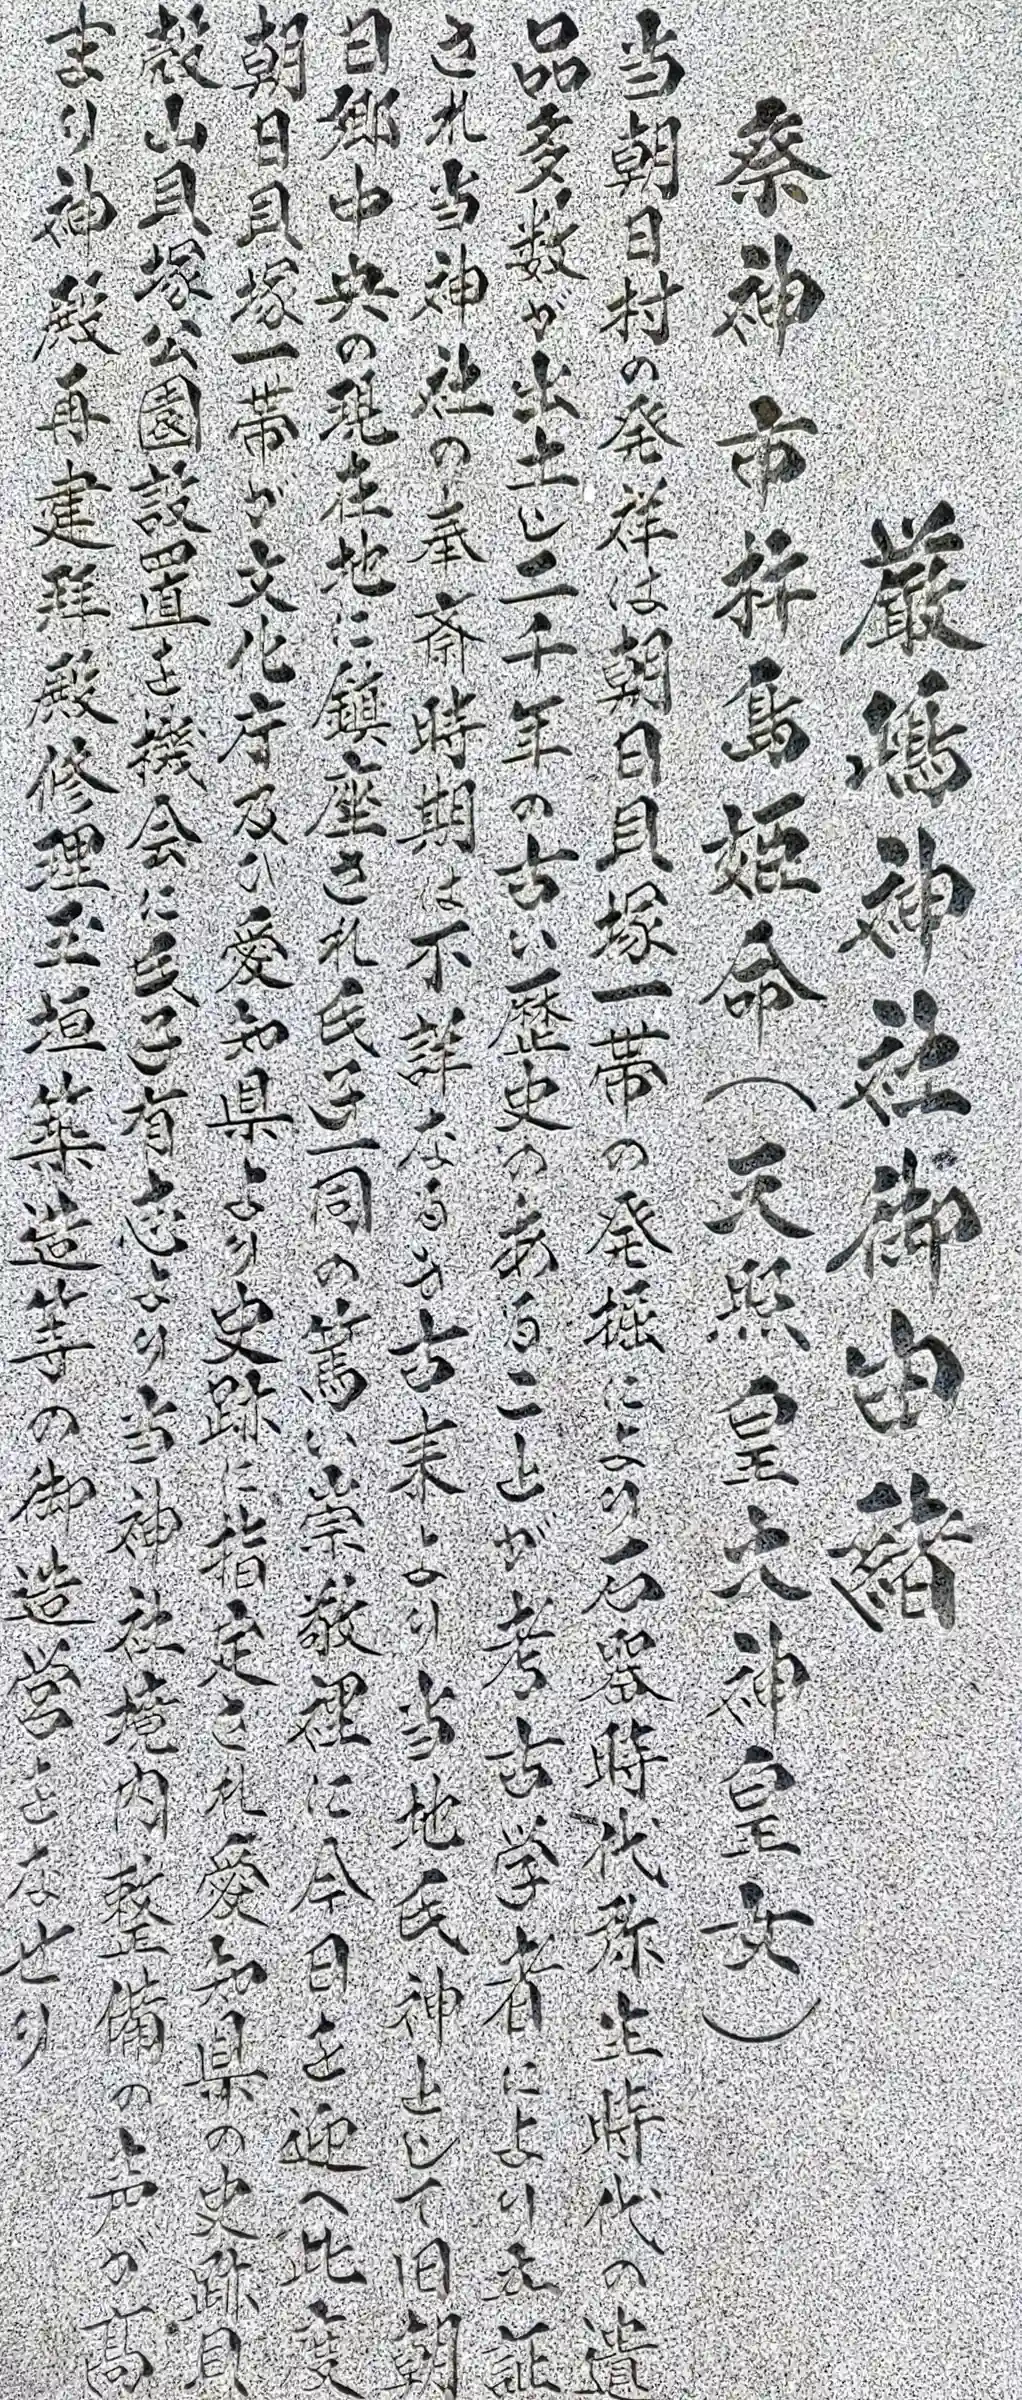 厳嶋神社御由緒
祭神 市杵島姫命(天照皇大神皇女)
当朝日村の発祥は朝日貝塚一帯の発掘により石器時代弥生時代の遺
品多数が出土し二千年の古い歴史のあることが考古学者により立証
され当神社の奉斎時期は不詳なるも古来より当地氏神として旧朝
日郷中央の現在地に鎮座され氏子一同の篤い崇敬裡に今日を迎へ此度
朝日貝塚一帯が文化庁及び愛知県より史跡に指定され愛知県の史跡貝
殻山貝塚公園設置を機会に氏子有志より当神社境内整備の声が高
まり神殿再建拜殿修理玉垣築造等の御造営をなせり